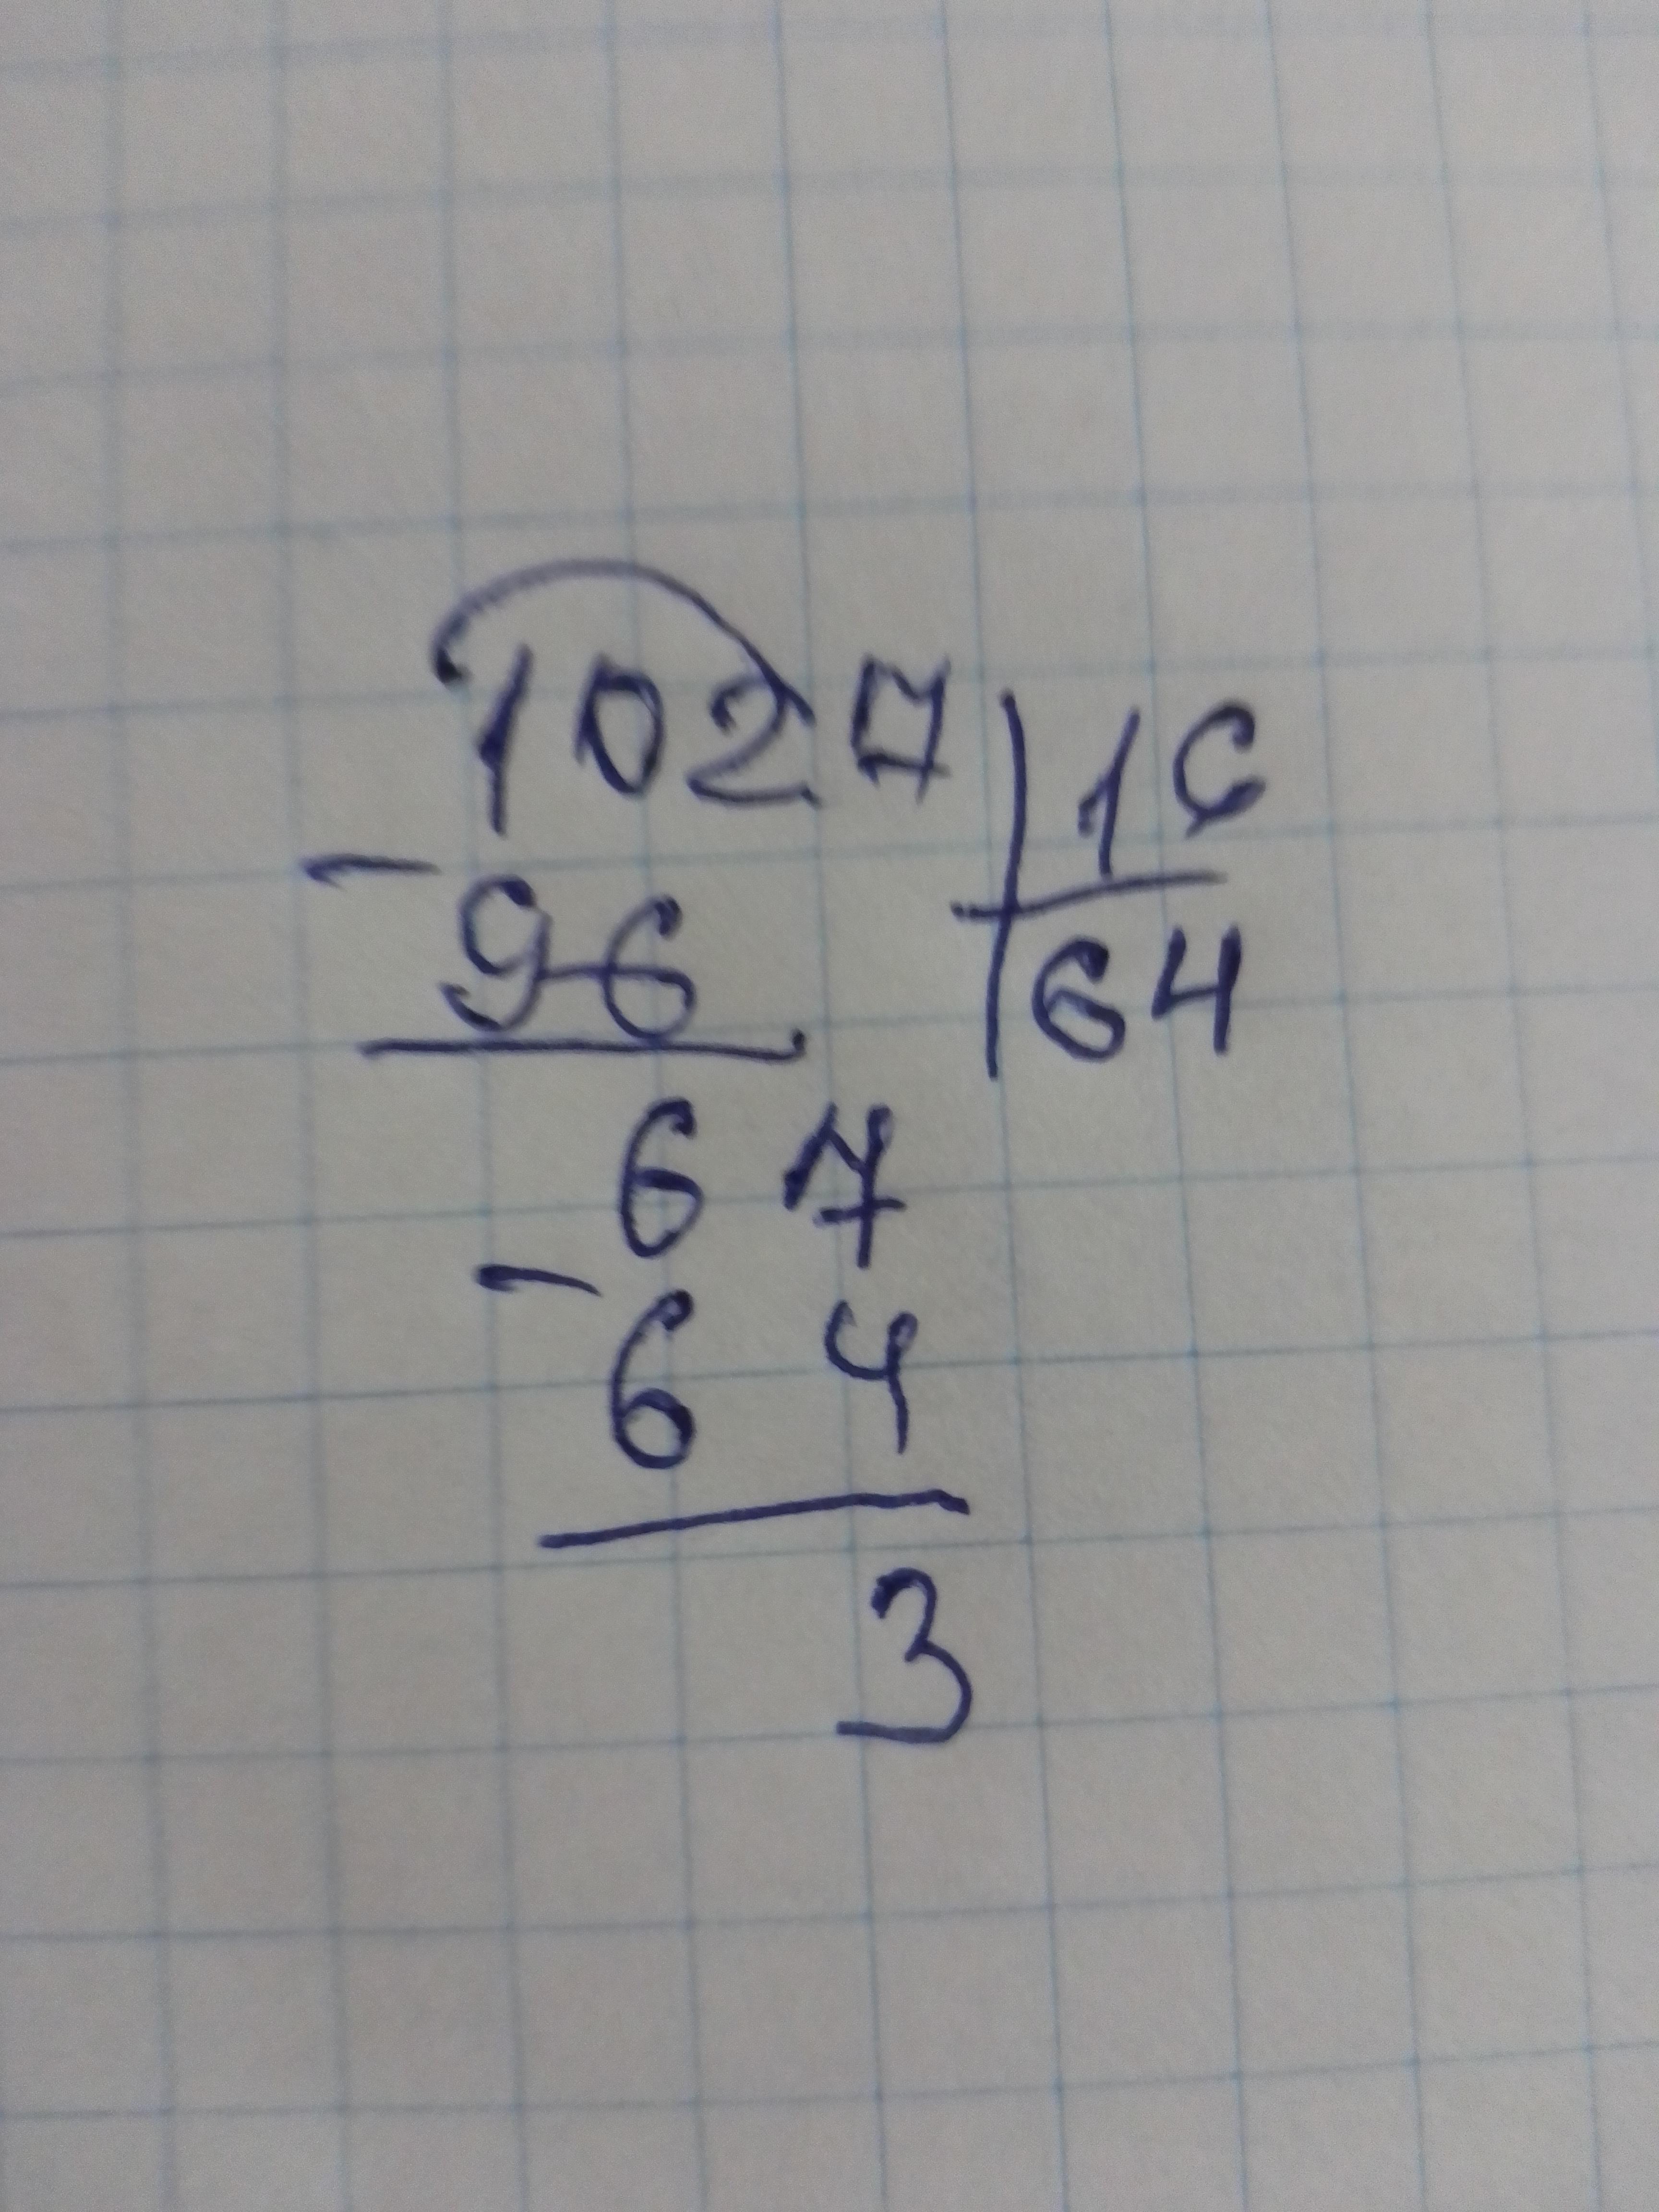 1027 16
- 96 64
67
- 64
3